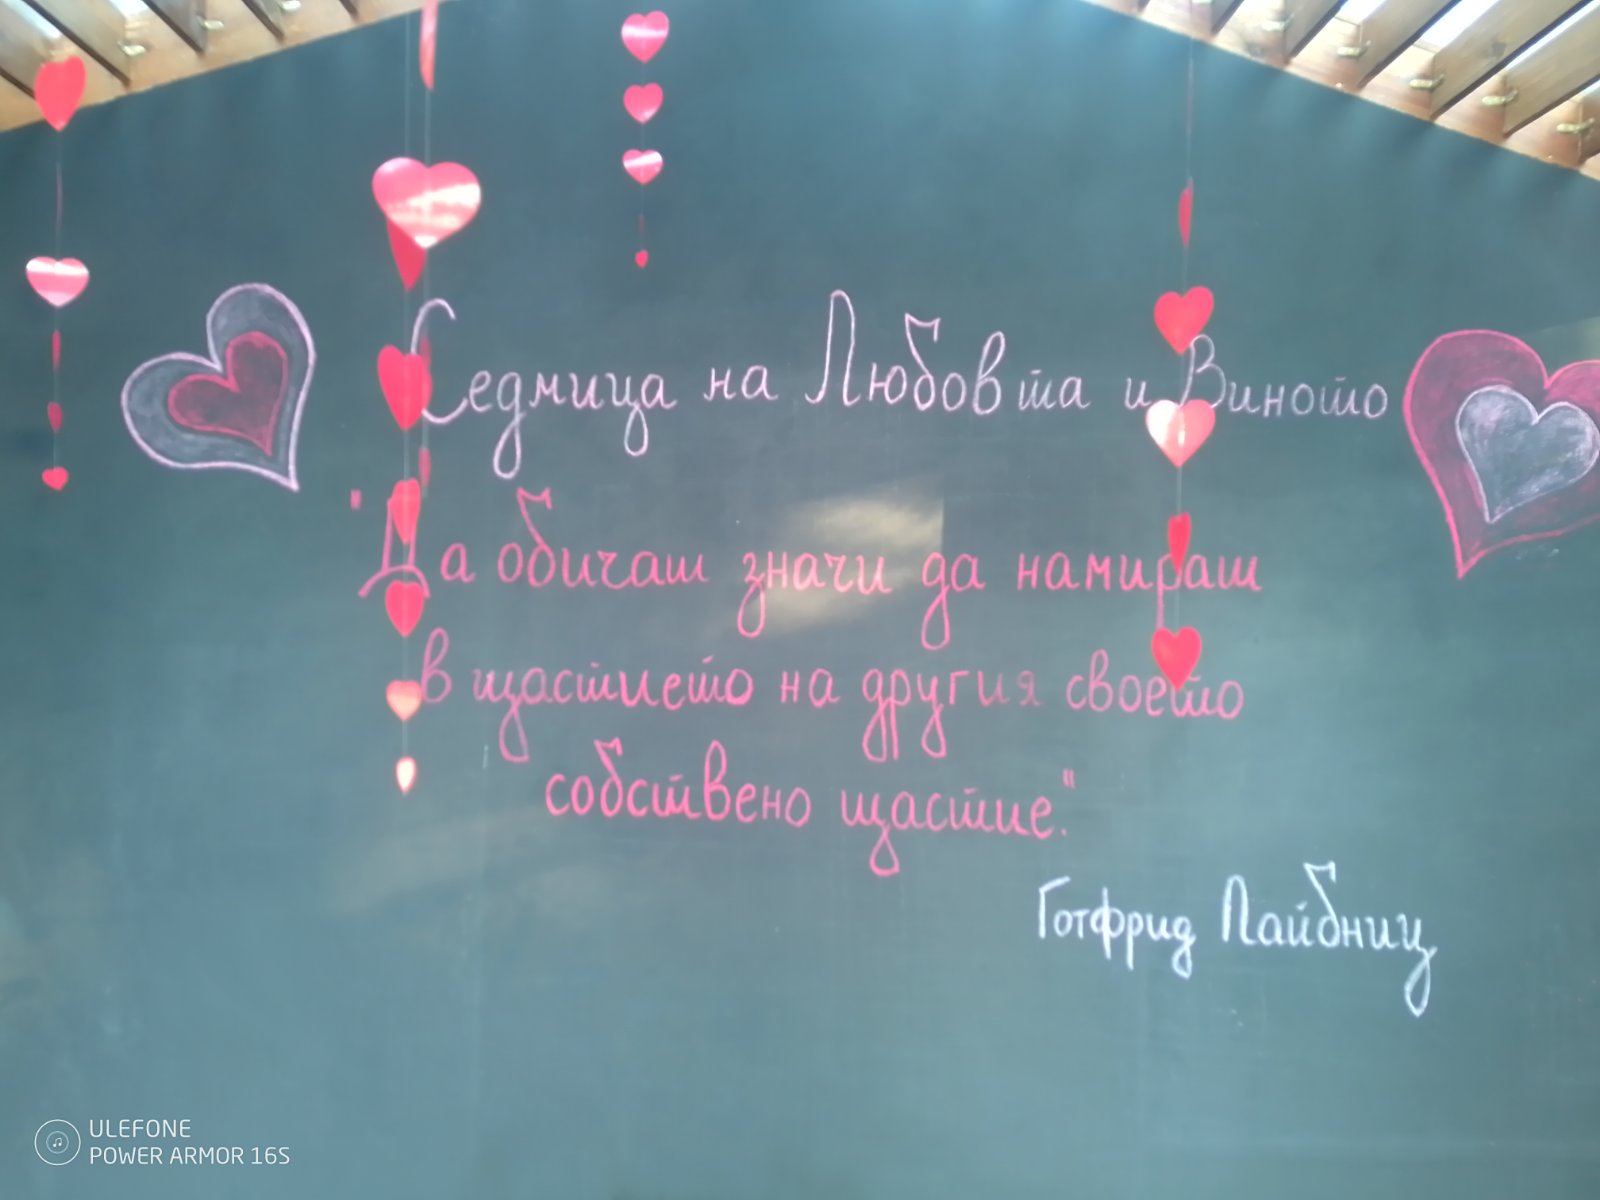 Седмица на Любовта и Виното
"Да обичаш значи да намираш
в щастието на другия своето
собствено щастие."
Готфрид Лайбниц
ULEFONE
POWER ARMOR 16S